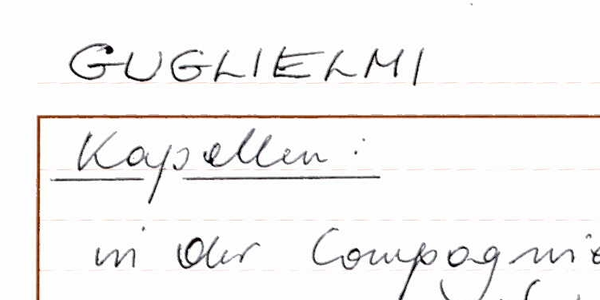 GUGLIELMI
Kapellen:
in der Compagnie